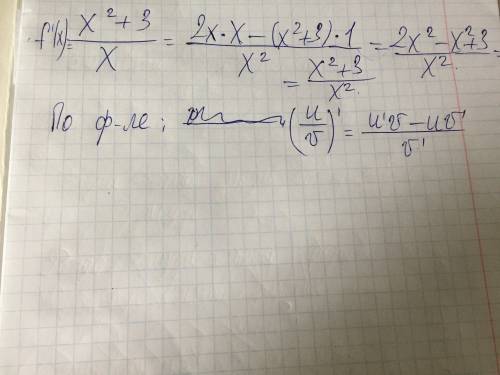 f'(x) = \frac{x^2+3}{x} = \frac{2x \cdot x - (x^2+3) \cdot 1}{x^2} = \frac{2x^2 - x^2+3}{x^2} =
= \frac{x^2+3}{x^2}
По ф-ле; \left(\frac{u}{v}\right)' = \frac{u'v - uv'}{v'}